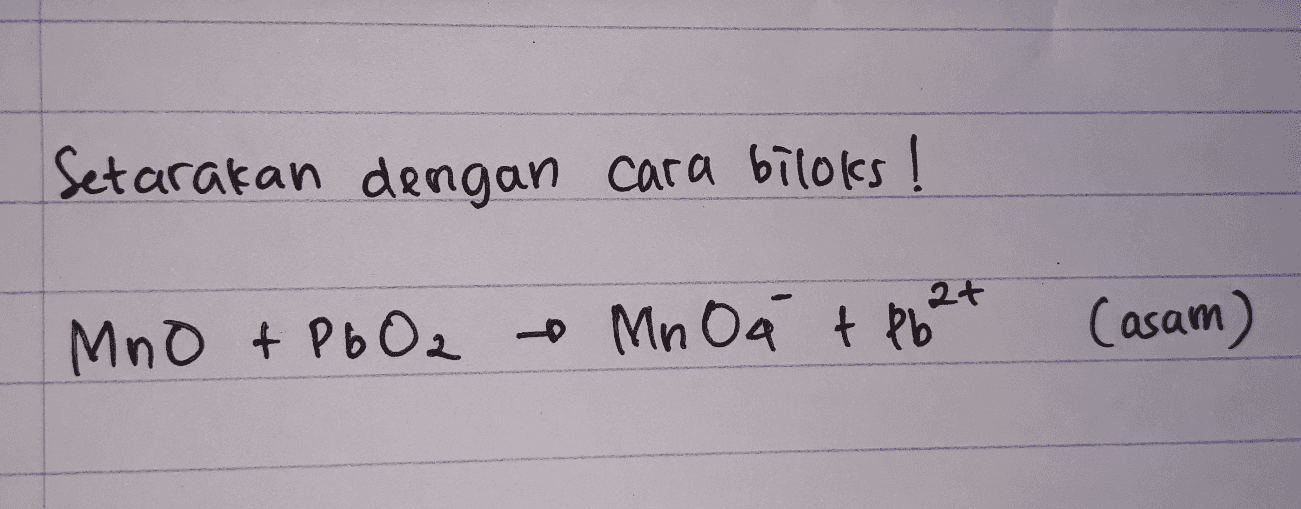 Setarakan dengan cara biloks!
MnO + PbO₂ → MnO₄⁻ + Pb²⁺ (asam)